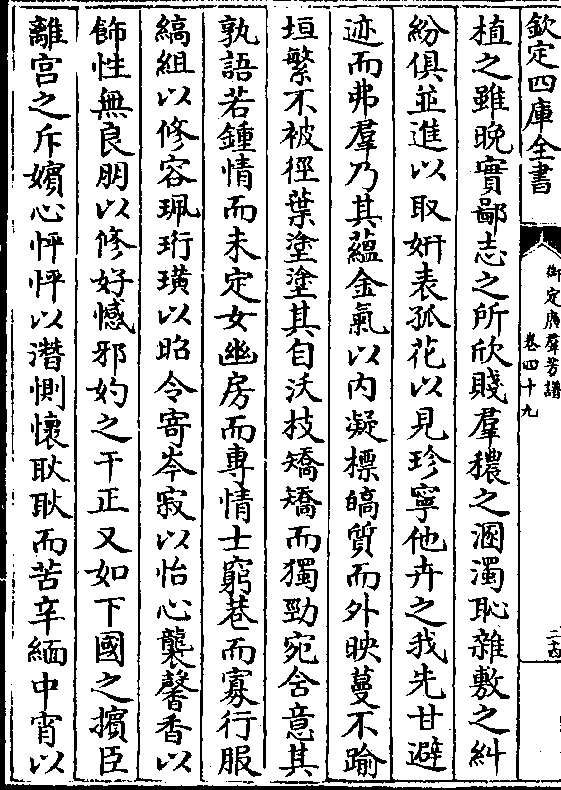 欽定四庫全書
御定廣羣芳譜
卷四十九
植之雖晚實鄙志之所欣賤羣穠之溷濁恥雜敷之糾
紛俱並進以取妍表孤花以見珍寧他卉之我先甘避
迹而弗羣乃其蘊金氣以内凝標皜質而外映蔓不踰
垣繁不被徑葉塗塗其自沃枝矯矯而獨勁宛含意其
孰語若鍾情而未定女幽房而專情士窮巷而寡行服
縞組以修容珮珩璜以昭令寄岑寂以怡心襲馨香以
飾性無良朋以修好憾邪妁之干正又如下國之擯臣
離宮之斥嬪心怦怦以潛惻懷耿耿而苦辛緬中宵以